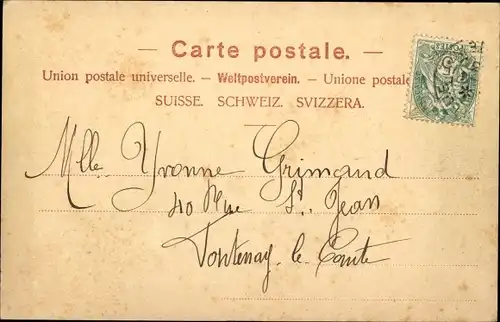 — Carte postale. —
Union postale universelle. — Weltpostverein. — Unione postale
SUISSE. SCHWEIZ. SVIZZERA.
Mlle Yvonne Grimaud
40 Rue St. Jean
Fontenay-le-Comte